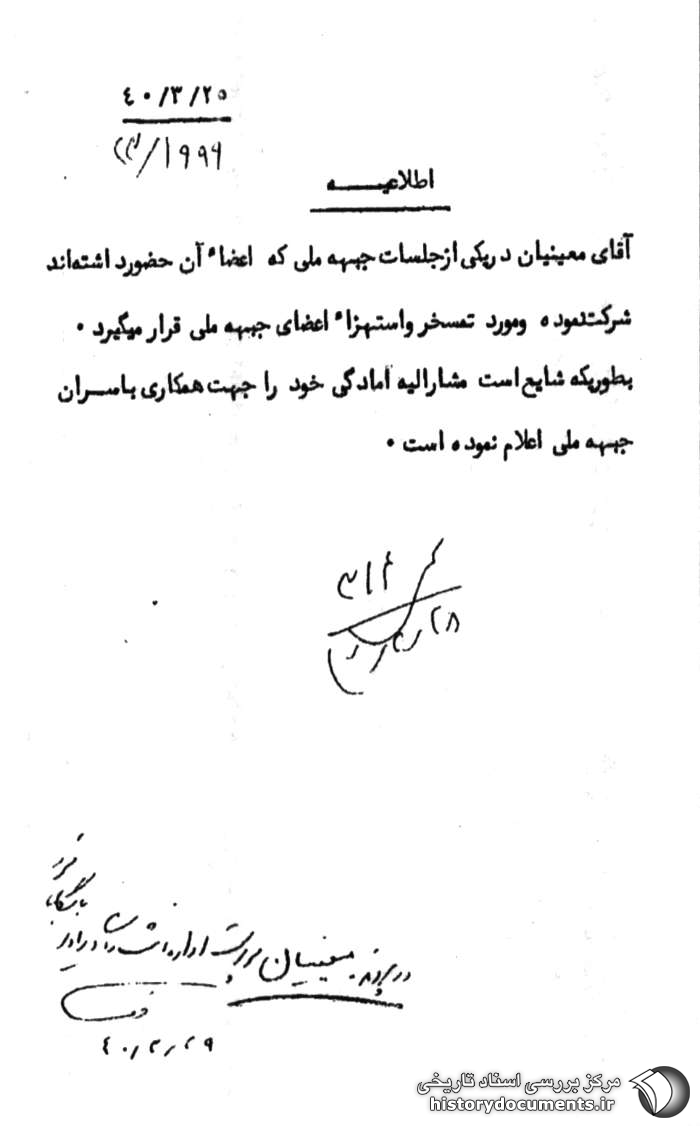 ۴۰/۳/۲۵
اطلاعیـــــه
آقای معینیان در یکی از جلسات جبهه ملی که اعضاء آن حضور داشته‌اند
شرکت نموده و مورد تمسخر و استهزاء اعضای جبهه ملی قرار میگیرد .
بطوریکه شایع است مشارالیه آمادگی خود را جهت همکاری با ســران
جبهه ملی اعلام نموده است .
۳۱۴
در پرونده معینیان
۴۰/۳/۲۹
مرکز بررسی اسناد تاریخی
historydocuments.ir